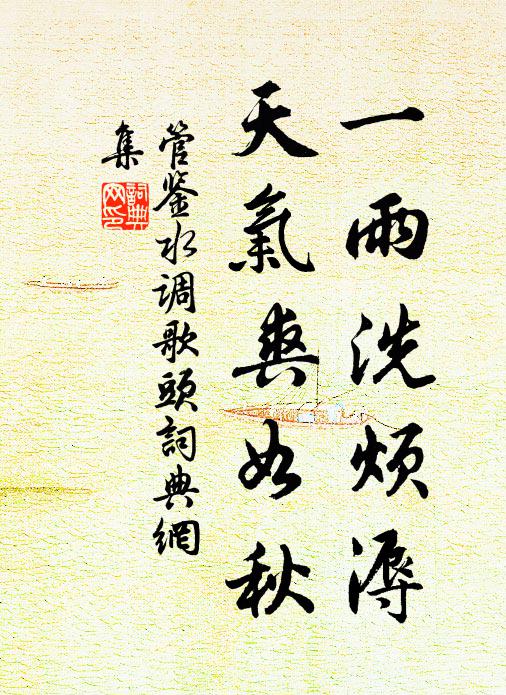 一雨洗烦溽
天氣爽如秋
管鉴水调歌頭詞典網
集
詞典网印